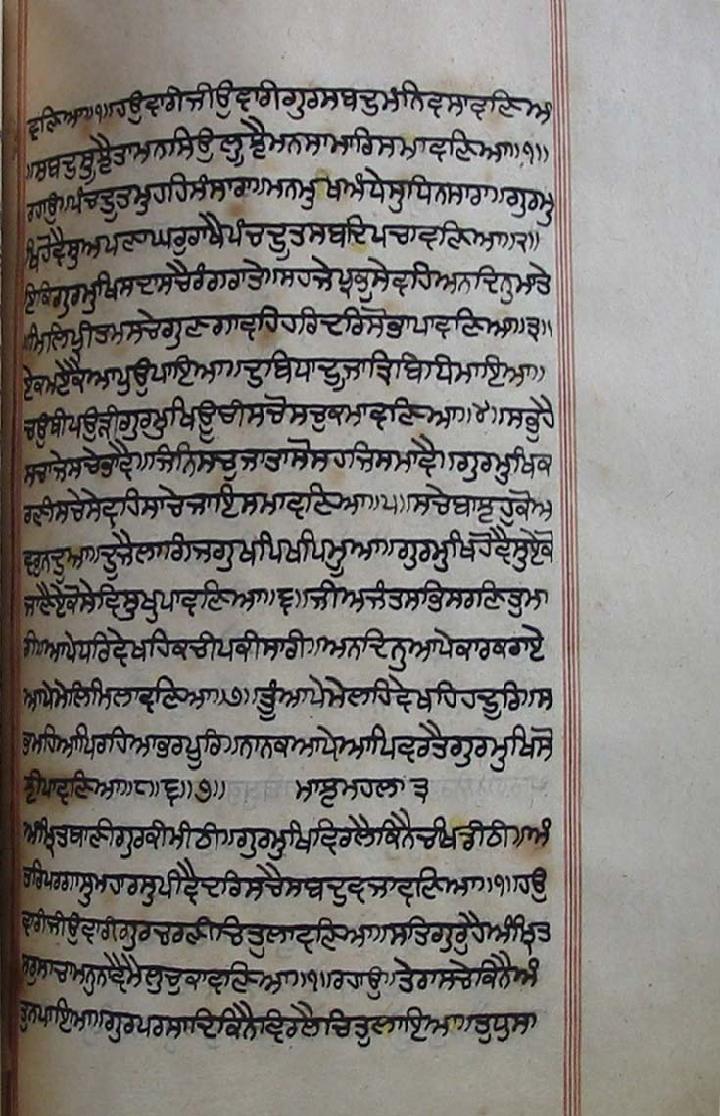 ਵਣਿਆ॥੧॥ਹਉਵਾਰੀਜੀਉਵਾਰੀਗੁਰਸਬਦੁਮੰਨਿਵਸਾਵਣਿਆ
॥ਸਬਦੁਸੂਝੈਤਾਮਨਸਿਉਲੂਝੈਮਨਸਾਮਾਰਿਸਮਾਵਣਿਆ॥੧॥
ਰਹਾਉ॥ਪੰਚਦੂਤਮੁਹਹਿਸੰਸਾਰਾ॥ਮਨਮੁਖਅੰਧੇਸੁਧਿਨਸਾਰਾ॥ਗੁਰਮੁ
ਖਿਹੋਵੈਸੁਆਪਣਾਘਰੁਰਾਖੈਪੰਚਦੂਤਸਬਦਿਪਚਾਵਣਿਆ॥੨॥
ਇਕਿਗੁਰਮੁਖਿਸਦਾਸਚੈਰੰਗਰਾਤੇ॥ਸਹਜੇਪ੍ਰਭੁਸੇਵਹਿਅਨਦਿਨੁਮਾਤੇ
॥ਮਿਲਿਪ੍ਰੀਤਮਸਚੇਗੁਣਗਾਵਹਿਹਰਿਦਰਿਸੋਭਾਪਾਵਣਿਆ॥੩॥
ਏਕਮਏਕੈਆਪੁਉਪਾਇਆ॥ਦੁਬਿਧਾਦੂਜਾਤ੍ਰਿਬਿਧਿਮਾਇਆ॥
ਚਉਥੀਪਉੜੀਗੁਰਮੁਖਿਊਚੀਸਚੋਸਚੁਕਮਾਵਣਿਆ॥੪॥ਸਭੁਹੈ
ਸਚਾਜੇਸਚੇਭਾਵੈ॥ਜਿਨਿਸਚੁਜਾਤਾਸੋਸਹਜਿਸਮਾਵੈ॥ਗੁਰਮੁਖਿਕ
ਰਣੀਸਚੇਸੇਵਹਿਸਾਚੇਜਾਇਸਮਾਵਣਿਆ॥੫॥ਸਚੇਬਾਝਹੁਕੋਅ
ਵਰੁਨਦੂਆ॥ਦੂਜੈਲਾਗਿਜਗੁਖਪਿਖਪਿਮੂਆ॥ਗੁਰਮੁਖਿਹੋਵੈਸੁਏਕੋ
ਜਾਣੈਏਕੋਸੇਵਿਸੁਖੁਪਾਵਣਿਆ॥੬॥ਜੀਅਜੰਤਸਭਿਸਰਣਿਤੁਮਾ
ਰੀ॥ਆਪੇਧਰਿਦੇਖਹਿਕਚੀਪਕੀਸਾਰੀ॥ਅਨਦਿਨੁਆਪੇਕਾਰਕਰਾਏ
ਆਪੇਮੇਲਿਮਿਲਾਵਣਿਆ॥੭॥ਤੂੰਆਪੇਮੇਲਹਿਦੇਖਹਿਹਦੂਰਿ॥ਸ
ਭਮਹਿਆਪਿਰਹਿਆਭਰਪੂਰਿ॥ਨਾਨਕਆਪੇਆਪਿਵਰਤੈਗੁਰਮੁਖਿਸੋ
ਝੀਪਾਵਣਿਆ॥੮॥੬॥੭॥ ਮਾਝਮਹਲਾ ੩
ਅੰਮ੍ਰਿਤਬਾਣੀਗੁਰਕੀਮੀਠੀ॥ਗੁਰਮੁਖਿਵਿਰਲੈਕਿਨੈਚਖਿਡੀਠੀ॥ਅੰ
ਤਰਿਪਰਗਾਸੁਮਹਾਰਸੁਪੀਵੈਦਰਿਸਚੈਸਬਦੁਵਜਾਵਣਿਆ॥੧॥ਹਉ
ਵਾਰੀਜੀਉਵਾਰੀਗੁਰਚਰਣੀਚਿਤੁਲਾਵਣਿਆ॥ਸਤਿਗੁਰੁਹੈਅੰਮ੍ਰਿਤ
ਸਰੁਸਾਚਾਮਨੁਨਾਵੈਮੈਲੁਚੁਕਾਵਣਿਆ॥੧॥ਰਹਾਉ॥ਤੇਰਾਸਚੇਕਿਨੈਅੰ
ਤੁਨਪਾਇਆ॥ਗੁਰਪਰਸਾਦਿਕਿਨੈਵਿਰਲੈਚਿਤੁਲਾਇਆ॥ਤੁਧੁਸਾ